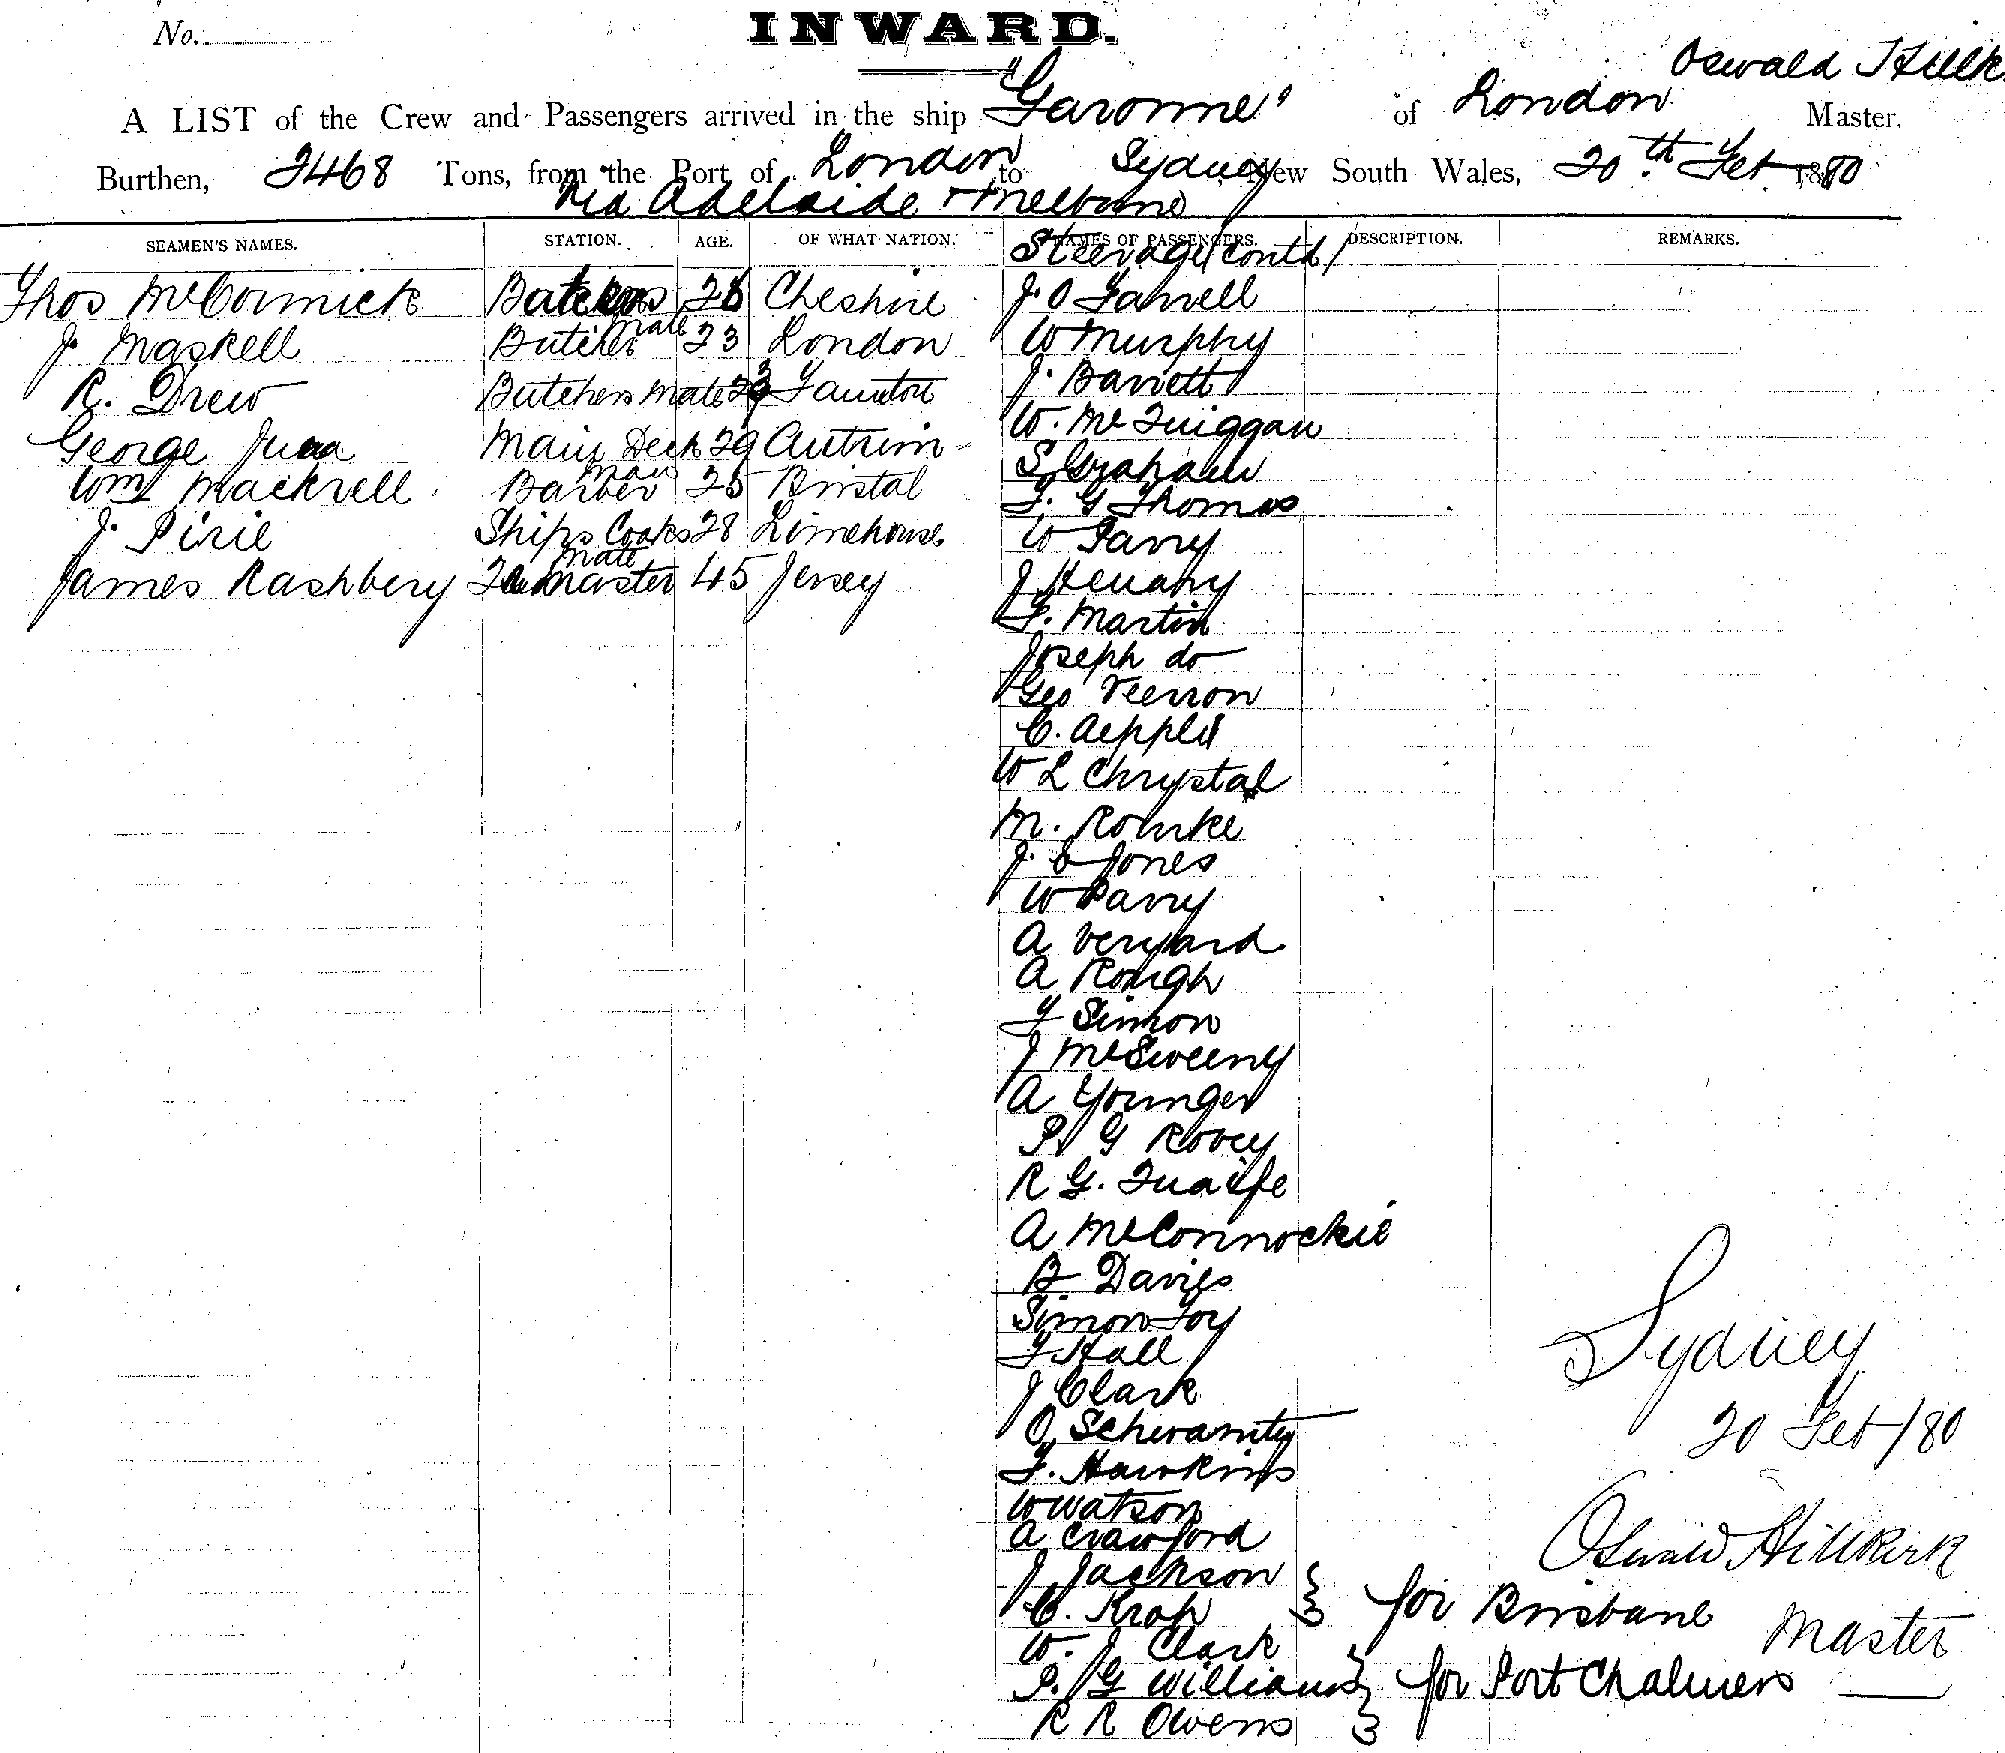 No.
INWARD.
Oswald Hillk
A LIST of the Crew and Passengers arrived in the ship "Garonne" of London Master,
Burthen, 2468 Tons, from the Port of London to Sydney, New South Wales, 20th Feb 1880
Via Adelaide & Melbourne
SEAMEN'S NAMES. STATION. AGE. OF WHAT NATION. NAMES OF PASSENGERS. DESCRIPTION. REMARKS.
Steerage (contd/
Thos McCormick Butchers 26 Cheshire J. O Farrell
J. Maskell Butchers mate 23 London W Murphy
R. Drew Butchers mate 23 Taunton J. Barrett
W. McQuiggan
George Judd Main Deck man 29 Antrim S Graham
Wm Mackrell Barber 25 Bristal T. G Thomas
J. Pirie Ships Cooks mate 28 Limehouse W Parry
James Rashbery master 45 Jersey J Heuahy
F. Martin
Joseph do
Geo Veerron
C. Aeppli
W L Chrystal
M. Rourke
J. Jones
W Parry
A Veryard
A Rough
Simon
J McSweeny
A Younger
P. G Rovey
R G. Quaife
A McConnockie
B. Davies
Simon Foy
Hall
J Clark
O Schwamtz
Hawkins
W Watson
A Crawford
J Jackson
C. Krop
for Brisbane
W. J Clark
P. G Williams
R R Owens
for Port Chalmers
Sydney
20 Feb/80
Oswald Hillkirk
Master